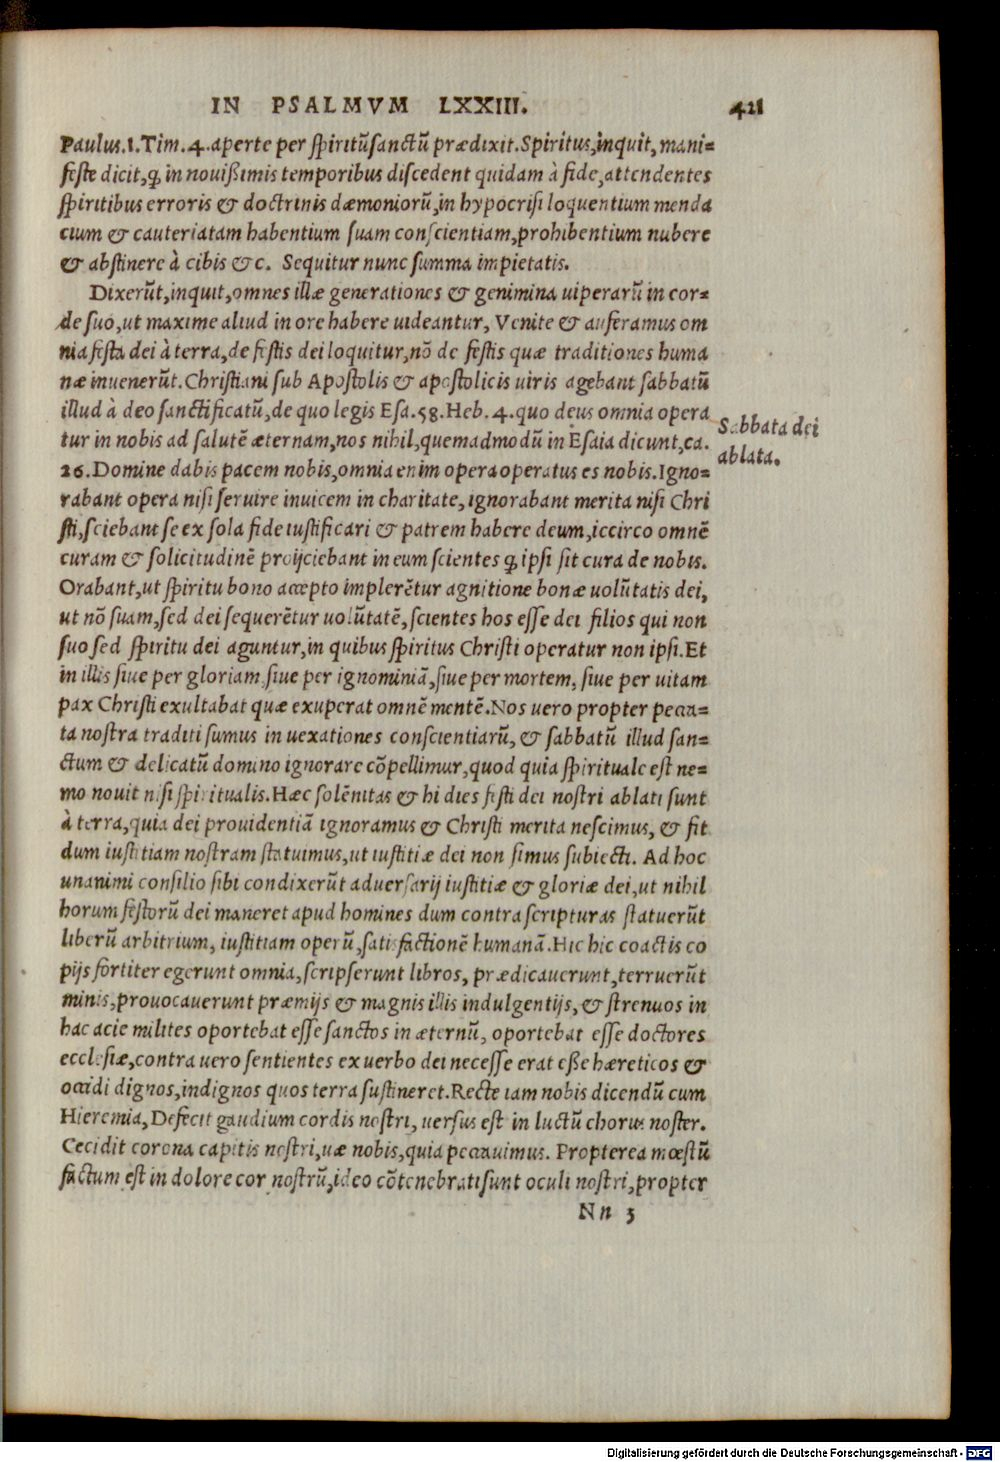 IN PSALMVM LXXIII. 421
Paulus.1.Tim.4.aperte per ſpiritũſanctũ prædixit.Spiritus,inquit, mani=
feſte dicit,ꝙ in nouißimis temporibus diſcedent quidam à fide,attendentes
ſpiritibus erroris & doctrinis dæmoniorũ,in hypocriſi loquentium menda
cium & cauteriatam habentium ſuam conſcientiam,prohibentium nubere
& abſtinere à cibis &c. Sequitur nunc ſumma impietatis.
Dixerũt,inquit,omnes illæ generationes & genimina uiperarũ in cor=
de ſuo,ut maxime aliud in ore habere uideantur, Venite & auferamus om
nia feſta dei à terra,de feſtis dei loquitur,nõ de feſtis quæ traditiones huma
næ inuenerũt.Chriſtiani ſub Apoſtolis & apoſtolicis uiris agebant ſabbatũ
illud à deo ſanctificatũ,de quo legis Eſa.58.Heb.4.quo deus omnia opera
Sabbata dei
tur in nobis ad ſalutẽ æternam,nos nihil,quemadmodũ in Eſaia dicunt,ca.
ablata.
26.Domine dabis pacem nobis,omnia enim opera operatus es nobis.Igno=
rabant opera niſi ſeruire inuicem in charitate,ignorabant merita niſi Chri
ſti,ſciebant ſe ex ſola fide iuſtificari & patrem habere deum,iccirco omnẽ
curam & ſolicitudinẽ proijciebant in eum ſcientes ꝙ ipſi ſit cura de nobis.
Orabant,ut ſpiritu bono accepto implerẽtur agnitione bonæ uolũtatis dei,
ut nõ ſuam,ſed dei ſequerẽtur uolũtatẽ,ſcientes hos eſſe dei filios qui non
ſuo ſed ſpiritu dei aguntur,in quibus ſpiritus Chriſti operatur non ipſi.Et
in illis ſiue per gloriam,ſiue per ignominiã,ſiue per mortem, ſiue per uitam
pax Chriſti exultabat quæ exuperat omnẽ mentẽ.Nos uero propter pecca=
ta noſtra traditi ſumus in uexationes conſcientiarũ, & ſabbatũ illud ſan=
ctum & delicatũ domino ignorare cõpellimur,quod quia ſpirituale eſt ne=
mo nouit niſi ſpiritualis.Hæc ſolẽnitas & hi dies feſti dei noſtri ablati ſunt
à terra,quia dei prouidentiã ignoramus & Chriſti merita neſcimus, & fit
dum iuſtitiam noſtram ſtatuimus,ut iuſtitiæ dei non ſimus ſubiecti. Ad hoc
unanimi conſilio ſibi condixerũt aduerſarij iuſtitiæ & gloriæ dei,ut nihil
horum feſtorũ dei maneret apud homines dum contra ſcripturas ſtatuerũt
liberũ arbitrium, iuſtitiam operũ,ſatisfactionẽ humanã.Hic hic coactis co
pijs fortiter egerunt omnia,ſcripſerunt libros, prædicauerunt,terruerũt
minis,prouocauerunt præmijs & magnis illis indulgentijs, & ſtrenuos in
hac acie milites oportebat eſſe ſanctos in æternũ, oportebat eſſe doctores
eccleſiæ,contra uero ſentientes ex uerbo dei neceſſe erat eße hæreticos &
occidi dignos,indignos quos terra ſuſtineret.Recte iam nobis dicendũ cum
Hieremia, Defecit gaudium cordis noſtri, uerſus eſt in luctũ chorus noſter.
Cecidit corona capitis noſtri,uæ nobis,quia peccauimus. Propterea mœſtũ
factum eſt in dolore cor noſtrũ,ideo cõtenebrati ſunt oculi noſtri,propter
Nn 3
Digitalisierung gefördert durch die Deutsche Forschungsgemeinschaft - DFG